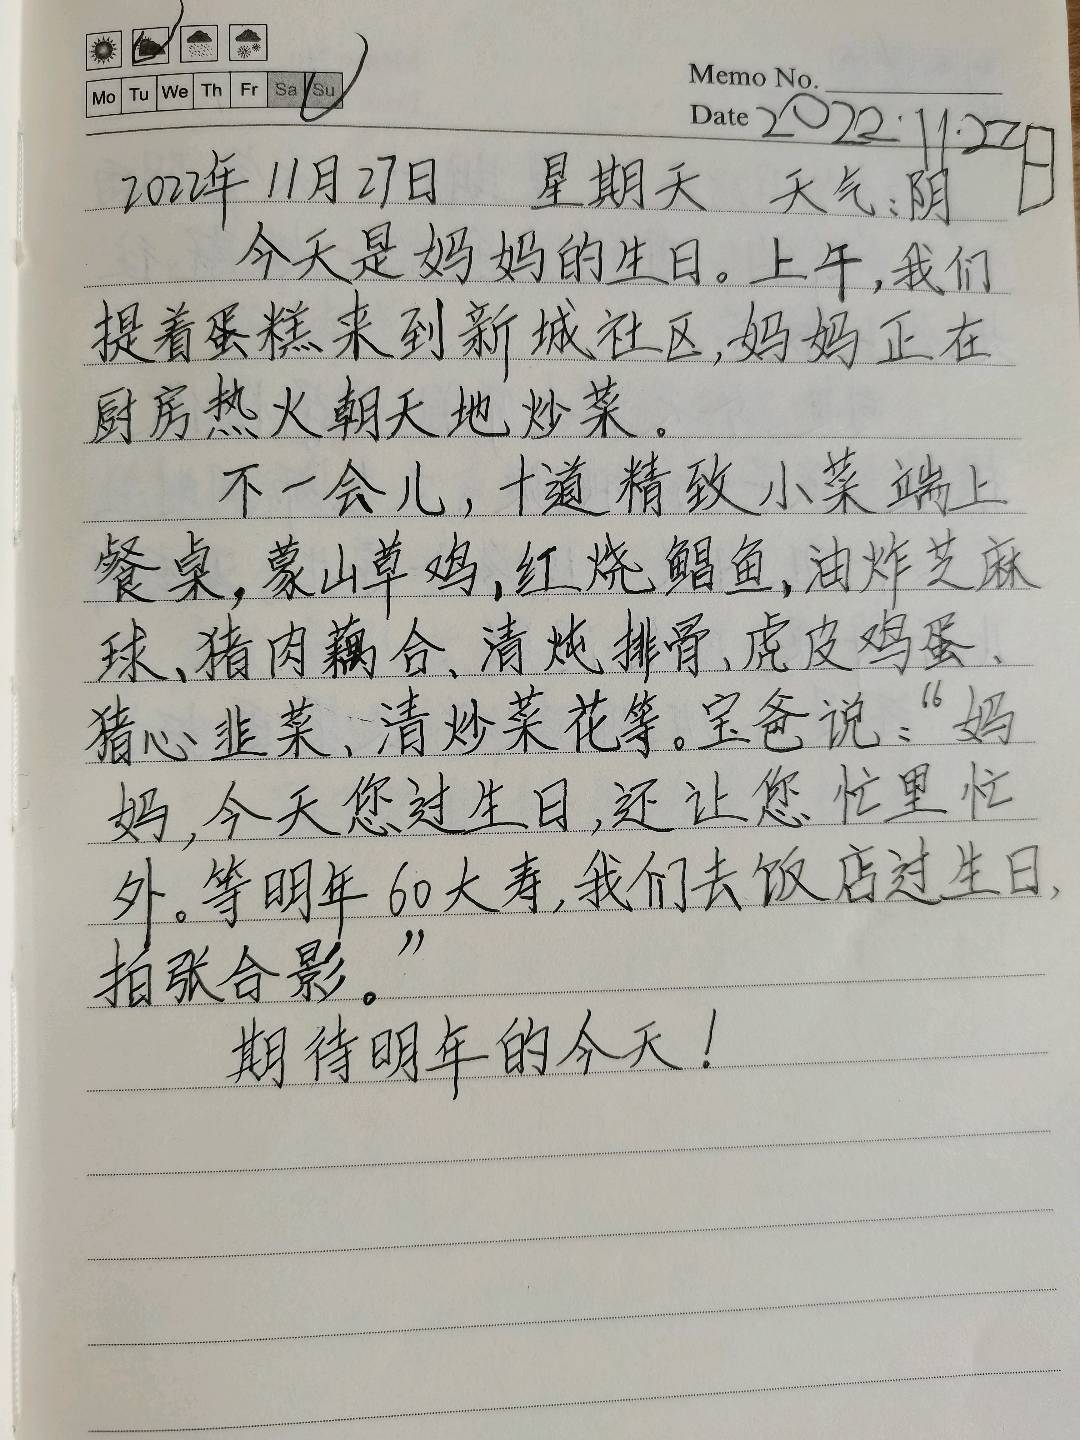 Mo Tu We Th Fr Sa Su
Memo No.
Date 2022.11.27日
2022年11月27日 星期天 天气:阴
今天是妈妈的生日。上午,我们
提着蛋糕来到新城社区,妈妈正在
厨房热火朝天地炒菜。
不一会儿,十道精致小菜端上
餐桌,蒙山草鸡,红烧鲳鱼,油炸芝麻
球、猪肉藕合、清炖排骨、虎皮鸡蛋、
猪心韭菜、清炒菜花等。宝爸说:“妈
妈,今天您过生日,还让您忙里忙
外。等明年60大寿,我们去饭店过生日,
拍张合影。”
期待明年的今天!